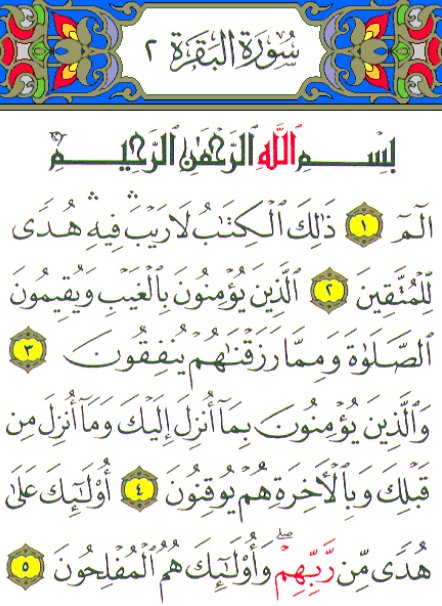 سُورَةُ البَقَرَةِ ٢
بِسْمِ ٱللَّهِ ٱلرَّحْمَٰنِ ٱلرَّحِيمِ
الٓمٓ ١ ذَٰلِكَ ٱلْكِتَٰبُ لَا رَيْبَ ۛ فِيهِ ۛ هُدًى
لِّلْمُتَّقِينَ ٢ ٱلَّذِينَ يُؤْمِنُونَ بِٱلْغَيْبِ وَيُقِيمُونَ
ٱلصَّلَوٰةَ وَمِمَّا رَزَقْنَٰهُمْ يُنفِقُونَ ٣
وَٱلَّذِينَ يُؤْمِنُونَ بِمَآ أُنزِلَ إِلَيْكَ وَمَآ أُنزِلَ مِن
قَبْلِكَ وَبِٱلْءَاخِرَةِ هُمْ يُوقِنُونَ ٤ أُو۟لَٰٓئِكَ عَلَىٰ
هُدًى مِّن رَّبِّهِمْ ۖ وَأُو۟لَٰٓئِكَ هُمُ ٱلْمُفْلِحُونَ ٥